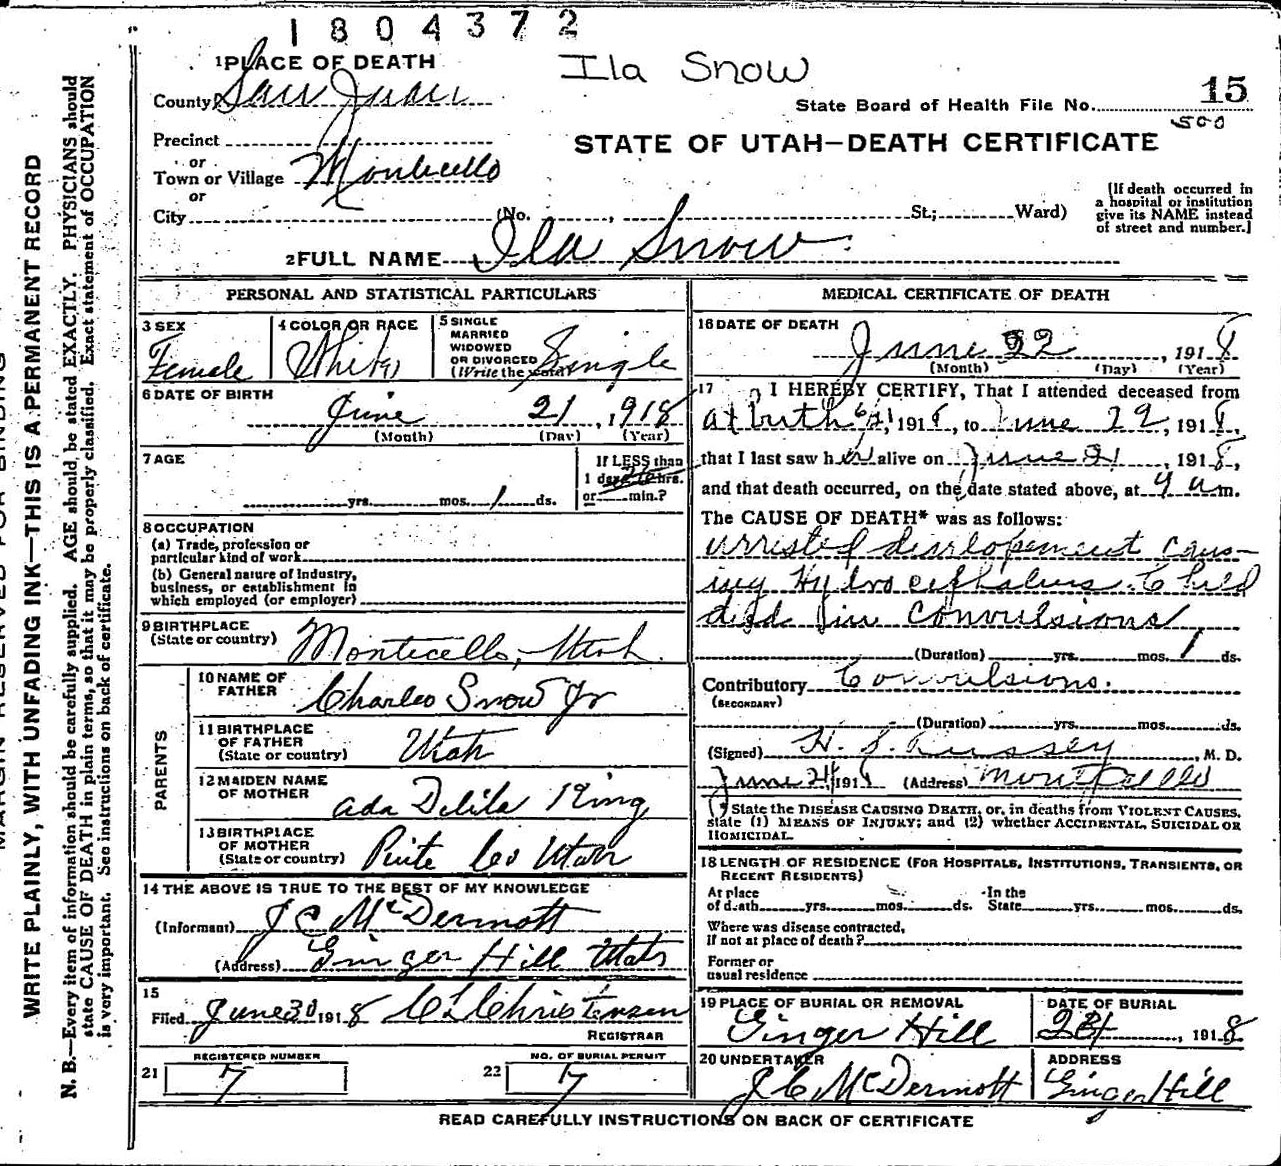 1804372
Ila Snow
1 PLACE OF DEATH
County San Juan
State Board of Health File No. 15
500
STATE OF UTAH—DEATH CERTIFICATE
Precinct
or
Town or Village Monticello
or
City (No. , St.; Ward)
(If death occurred in a hospital or institution give its NAME instead of street and number.]
2 FULL NAME Ila Snow
PERSONAL AND STATISTICAL PARTICULARS
3 SEX Female
4 COLOR OR RACE White
5 SINGLE MARRIED WIDOWED OR DIVORCED (Write the word) Single
6 DATE OF BIRTH
June 21, 1918
(Month) (Day) (Year)
7 AGE
yrs. mos. 1 ds.
If LESS than
1 day hrs.
or min.?
8 OCCUPATION
(a) Trade, profession or
particular kind of work
(b) General nature of Industry,
business, or establishment in
which employed (or employer)
9 BIRTHPLACE
(State or country) Monticello, Utah.
PARENTS
10 NAME OF FATHER Charles Snow Jr
11 BIRTHPLACE OF FATHER (State or country) Utah
12 MAIDEN NAME OF MOTHER Ada Delila King
13 BIRTHPLACE OF MOTHER (State or country) Piute Co Utah
14 THE ABOVE IS TRUE TO THE BEST OF MY KNOWLEDGE
(Informant) J C McDermott
(Address) Ginger Hill Utah
15
Filed June 30 1918 C L Christensen
REGISTRAR
REGISTERED NUMBER
21 7
NO. OF BURIAL PERMIT
22 7
MEDICAL CERTIFICATE OF DEATH
16 DATE OF DEATH
June 22, 1918
(Month) (Day) (Year)
17 I HEREBY CERTIFY, That I attended deceased from
at birth 6/21 1918, to June 22, 1918,
that I last saw her alive on June 21, 1918,
and that death occurred, on the date stated above, at 9 a m.
The CAUSE OF DEATH* was as follows:
arrested divelopement caus-
ing Hydrocephalus. Child
died in Convulsions
(Duration) yrs. mos. 1 ds.
Contributory Convulsions.
(SECONDARY)
(Duration) yrs. mos. ds.
(Signed) H. S. , M. D.
June 24 1918 (Address) Monticello
* State the DISEASE CAUSING DEATH, or, in deaths from VIOLENT CAUSES,
state (1) MEANS OF INJURY; and (2) whether ACCIDENTAL, SUICIDAL OR
HOMICIDAL.
18 LENGTH OF RESIDENCE (FOR HOSPITALS, INSTITUTIONS, TRANSIENTS, OR
RECENT RESIDENTS)
At place of death yrs. mos. ds. In the State yrs. mos. ds.
Where was disease contracted,
If not at place of death?
Former or
usual residence
19 PLACE OF BURIAL OR REMOVAL
Ginger Hill
DATE OF BURIAL
24, 1918
20 UNDERTAKER
J C McDermott
ADDRESS
Ginger Hill
READ CAREFULLY INSTRUCTIONS ON BACK OF CERTIFICATE
MARGIN RESERVED FOR BINDING
WRITE PLAINLY, WITH UNFADING INK—THIS IS A PERMANENT RECORD
N. B.—Every item of information should be carefully supplied. AGE should be stated EXACTLY. PHYSICIANS should
state CAUSE OF DEATH in plain terms, so that it may be properly classified. Exact statement of OCCUPATION
is very important. See instructions on back of certificate.